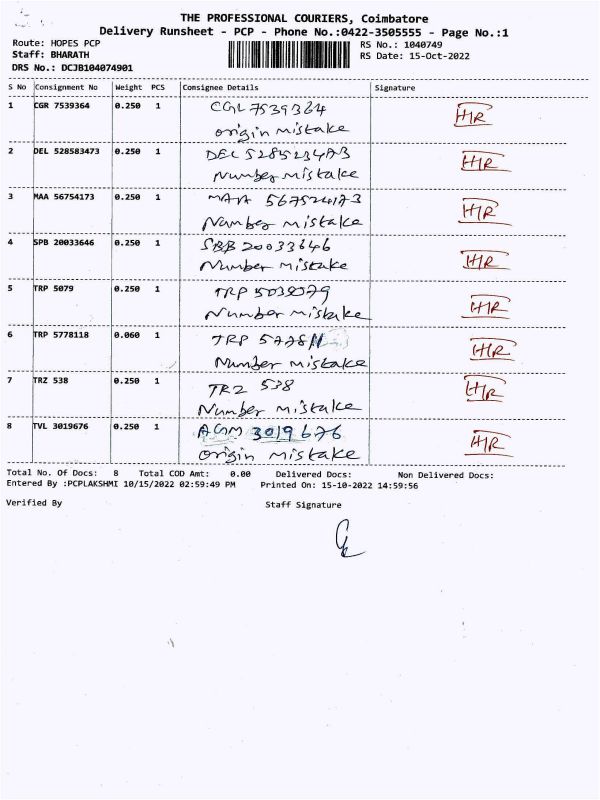 THE PROFESSIONAL COURIERS, Coimbatore
Delivery Runsheet - PCP - Phone No.:0422-3505555 - Page No.:1
Route: HOPES PCP RS No.: 1040749
Staff: BHARATH RS Date: 15-Oct-2022
DRS No.: DCJB104074901
S No Consignment No Weight PCS Consignee Details Signature
1 CGR 7539364 0.250 1 CGL 7539364 HR
origin mistake
2 DEL 528583473 0.250 1 DEL 528523473 HR
Number mistake
3 MAA 56754173 0.250 1 MAA 567524173 HR
Number mistake
4 SPB 20033646 0.250 1 SBB 20033646 HR
Number mistake
5 TRP 5079 0.250 1 TRP 5039079 HR
Number mistake
6 TRP 5778118 0.060 1 TRP 57781 HR
Number mistake
7 TRZ 538 0.250 1 TRZ 538 HR
Number mistake
8 TVL 3019676 0.250 1 AGM 3019676 HR
origin mistake
Total No. Of Docs: 8 Total COD Amt: 0.00 Delivered Docs: Non Delivered Docs:
Entered By :PCPLAKSHMI 10/15/2022 02:59:49 PM Printed On: 15-10-2022 14:59:56
Verified By Staff Signature